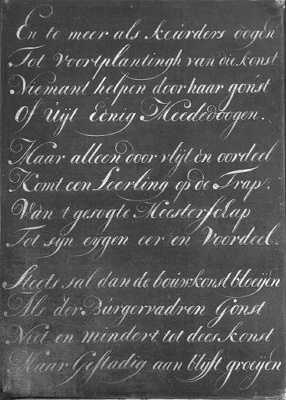 En te meer als keurders oogen
Tot Voortplantingh van die konst
Niemant helpen door haar gonst
Of Uijt Eenig Meededoogen.
Maar alleen door vlijt en oordeel
Komt een Leerling op de Trap.
Van t gesogte Meesterschap
Tot sijn eygen eer en Voordeel.
Steets sal dan de bouwkonst bloeijen
Als der Burgervadren Gonst
Niet en mindert tot dees konst
Maar Gestadig aan blyft groeijen